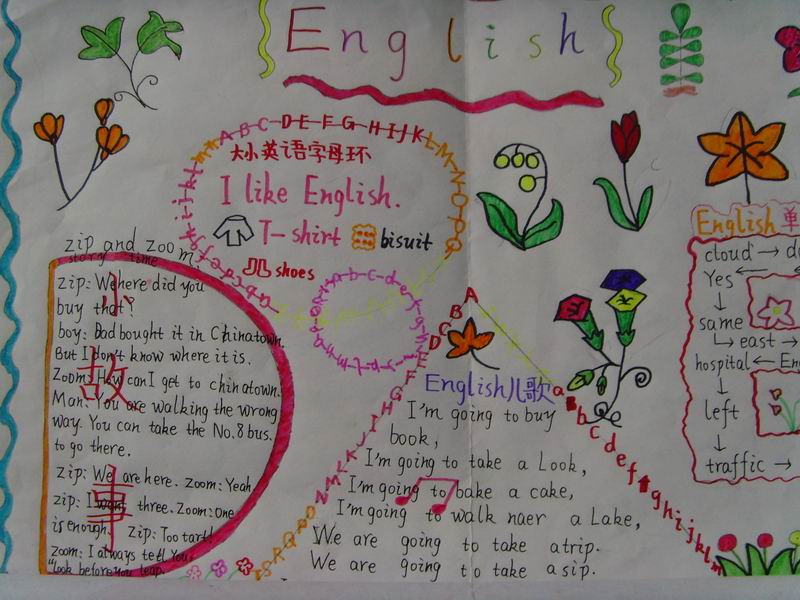 English
A B C D E F G H I J K L M N O P Q
大小英语字母环
I like English.
T-shirt bisuit
shoes
zip and zoom
story time
zip: Where did you
buy that?
boy: Dad bought it in Chinatown.
But I don't know where it is.
Zoom: How can I get to chinatown.
Man: You are walking the wrong
way. You can take the No.8 bus.
to go there.
zip: We are here. zoom: Yeah
zip: I want three. Zoom: One
is enough. Zip: Too tart!
zoom: I always tell You,
"look before you leap.
小故事
A B C D E F G H I J K L M N O P Q R S
a b c d e f g h i j k l m
English儿歌
I'm going to buy
book,
I'm going to take a Look,
I'm going to bake a cake,
I'm going to walk naer a Lake,
We are going to take atrip.
We are going to take asip.
English 单
cloud → d
Yes ←
↓
same
↳ east →
hospital ← En
↓
left
↓
traffic →